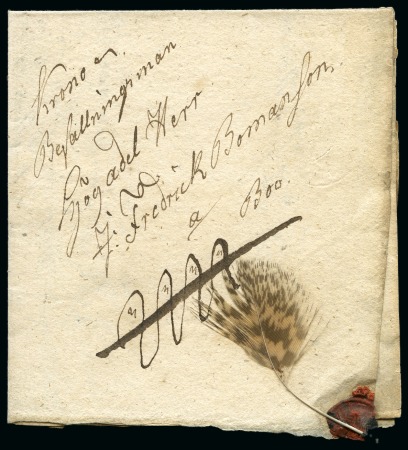 Krono
Befallningsman
Högädel Herr
J. Fredrick Bomanson,
a Boo.